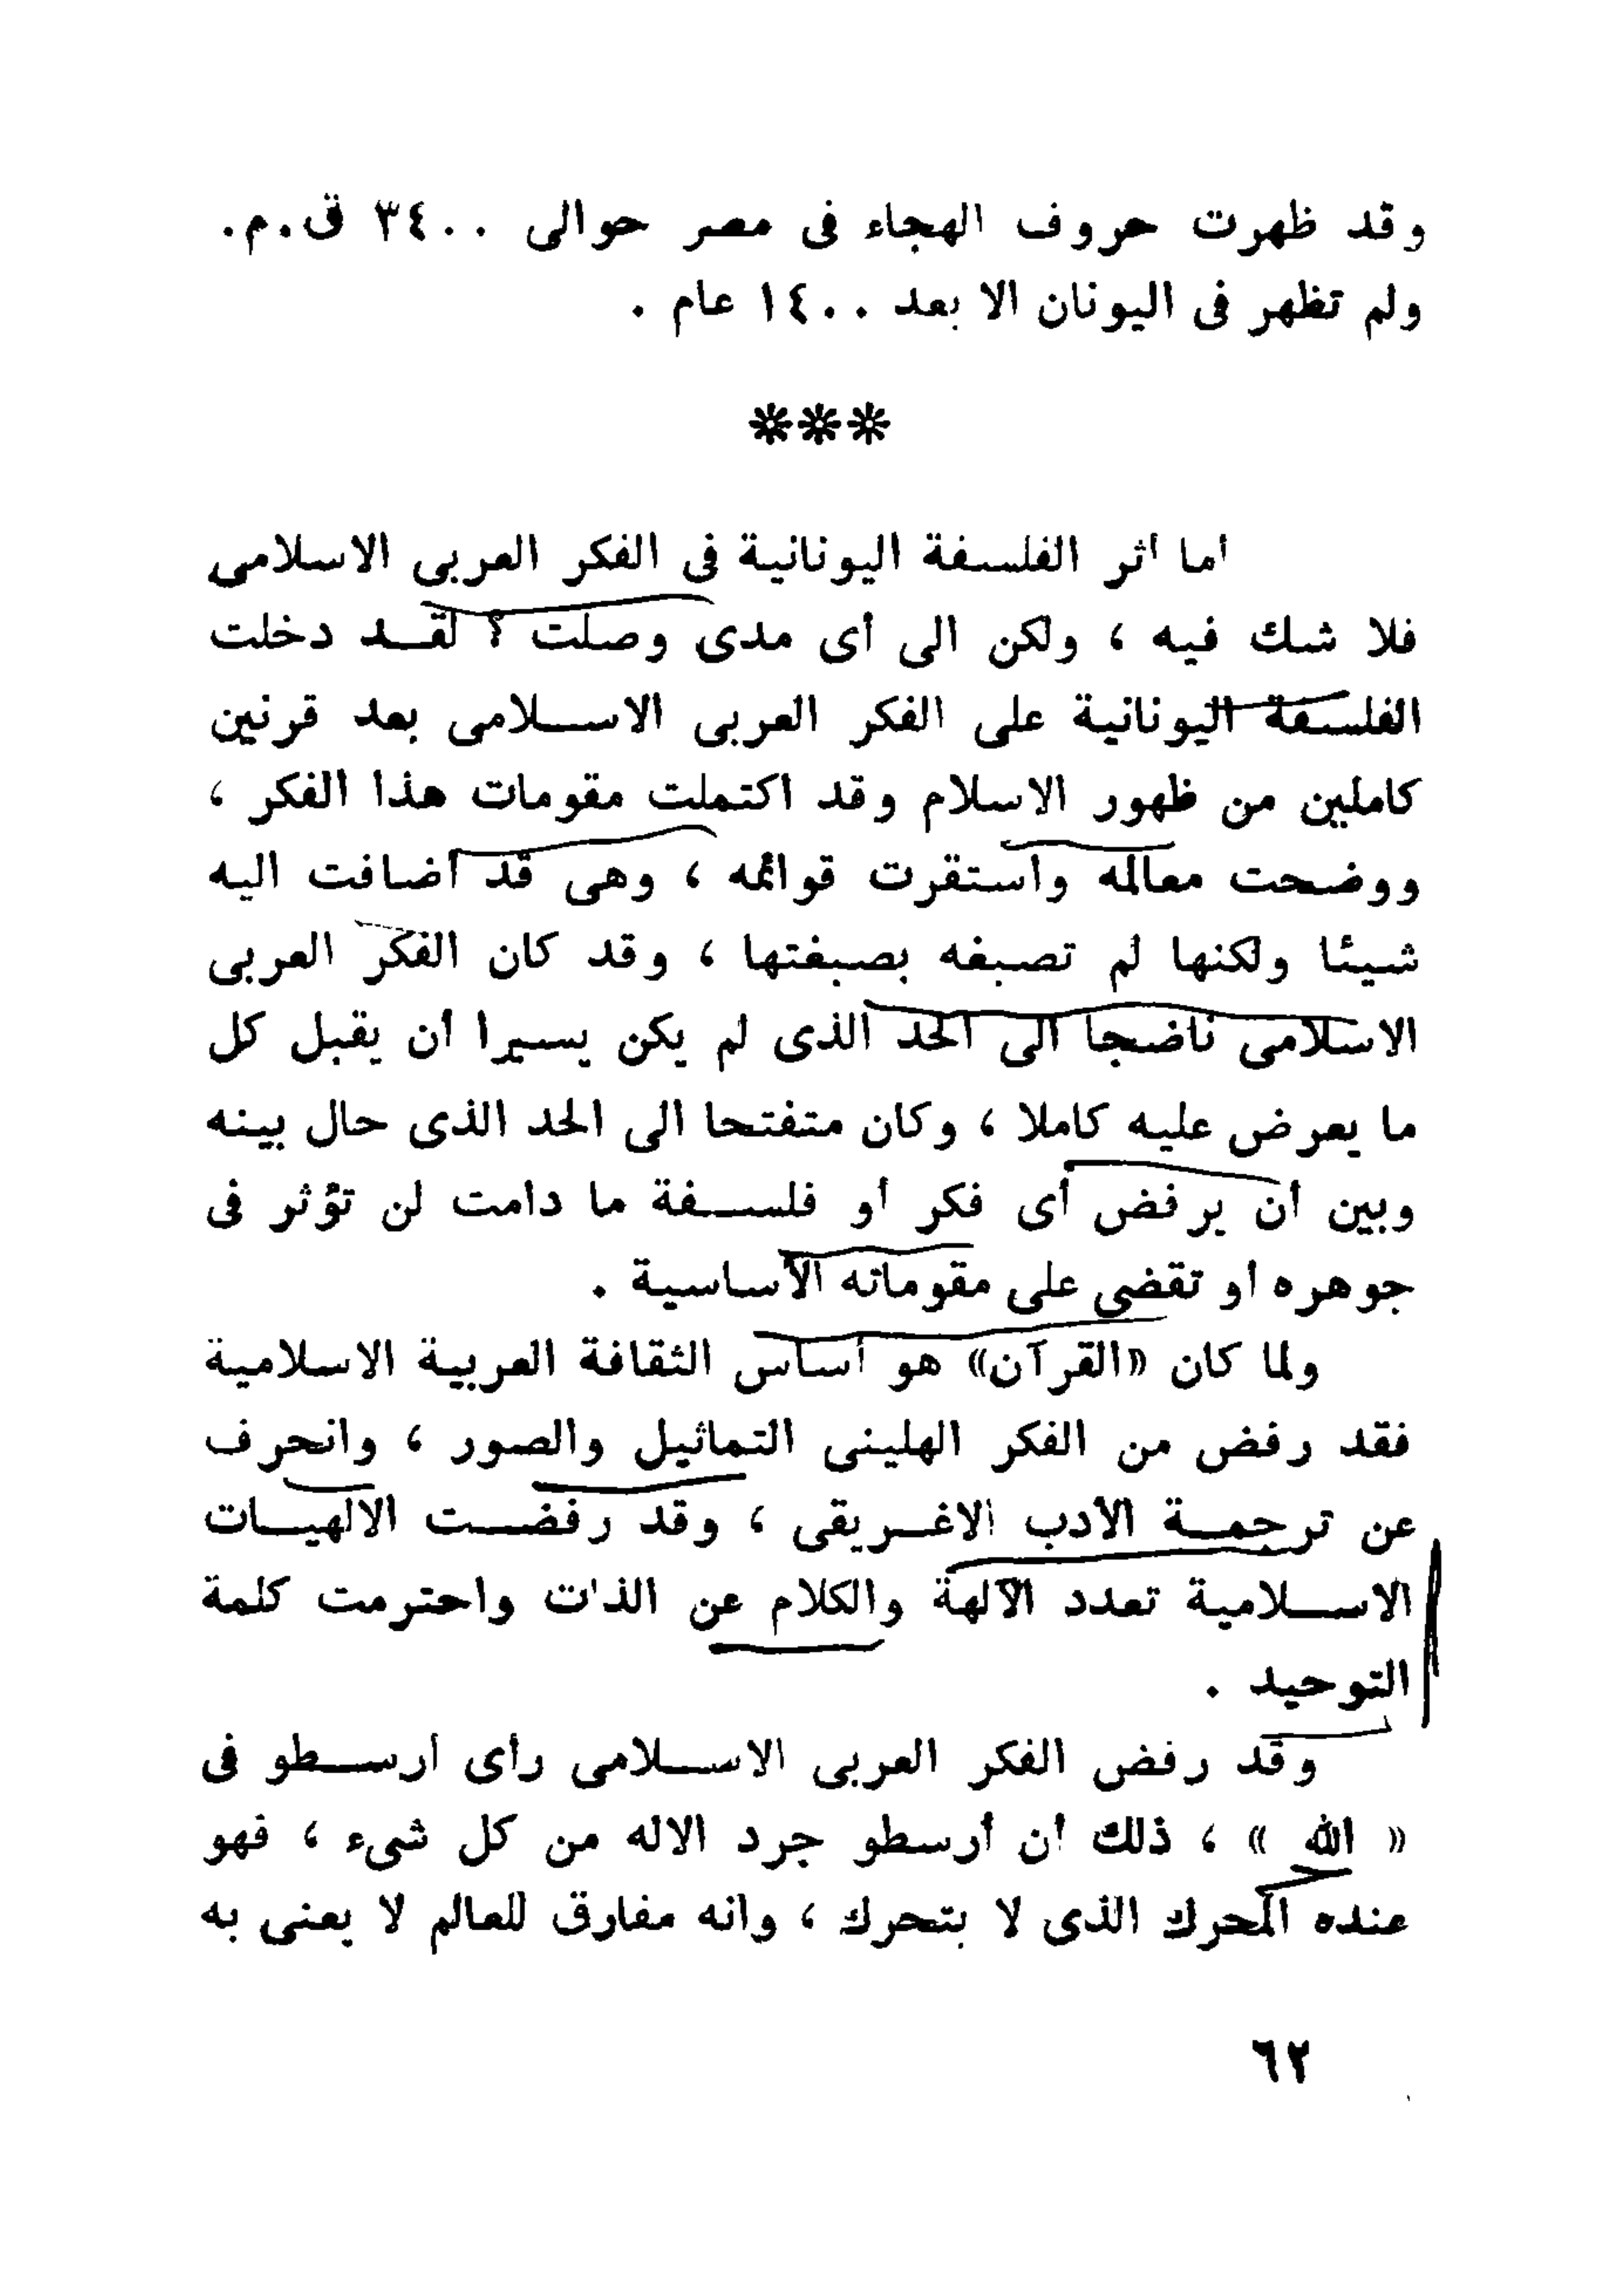 وقد ظهرت حروف الهجاء فى مصر حوالى ٣٤٠٠ ق.م.
ولم تظهر فى اليونان الا بعد ١٤٠٠ عام .
***
أما أثر الفلسفة اليونانية فى الفكر العربى الاسلامى
فلا شك فيه ، ولكن الى أى مدى وصلت ؟ لقد دخلت
الفلسفة اليونانية على الفكر العربى الاسلامى بعد قرنين
كاملين من ظهور الاسلام وقد اكتملت مقومات هذا الفكر ،
ووضحت معالمه واستقرت قوائمه ، وهى قد أضافت اليه
شيئا ولكنها لم تصبغه بصبغتها ، وقد كان الفكر العربى
الاسلامى ناضجا الى الحد الذى لم يكن يسيرا أن يقبل كل
ما يعرض عليه كاملا ، وكان متفتحا الى الحد الذى حال بينه
وبين أن يرفض أى فكر أو فلسفة ما دامت لن تؤثر فى
جوهره أو تقضى على مقوماته الأساسية .
ولما كان «القرآن» هو أساس الثقافة العربية الاسلامية
فقد رفض من الفكر الهلينى التماثيل والصور ، وانحرف
عن ترجمة الأدب الاغريقى ، وقد رفضت الالهيات
الاسلامية تعدد الآلهة والكلام عن الذات واحترمت كلمة
التوحيد .
وقد رفض الفكر العربى الاسلامى رأى أرسطو فى
« الله » ، ذلك أن أرسطو جرد الاله من كل شىء ، فهو
عنده المحرك الذى لا يتحرك ، وانه مفارق للعالم لا يعنى به
٦٢